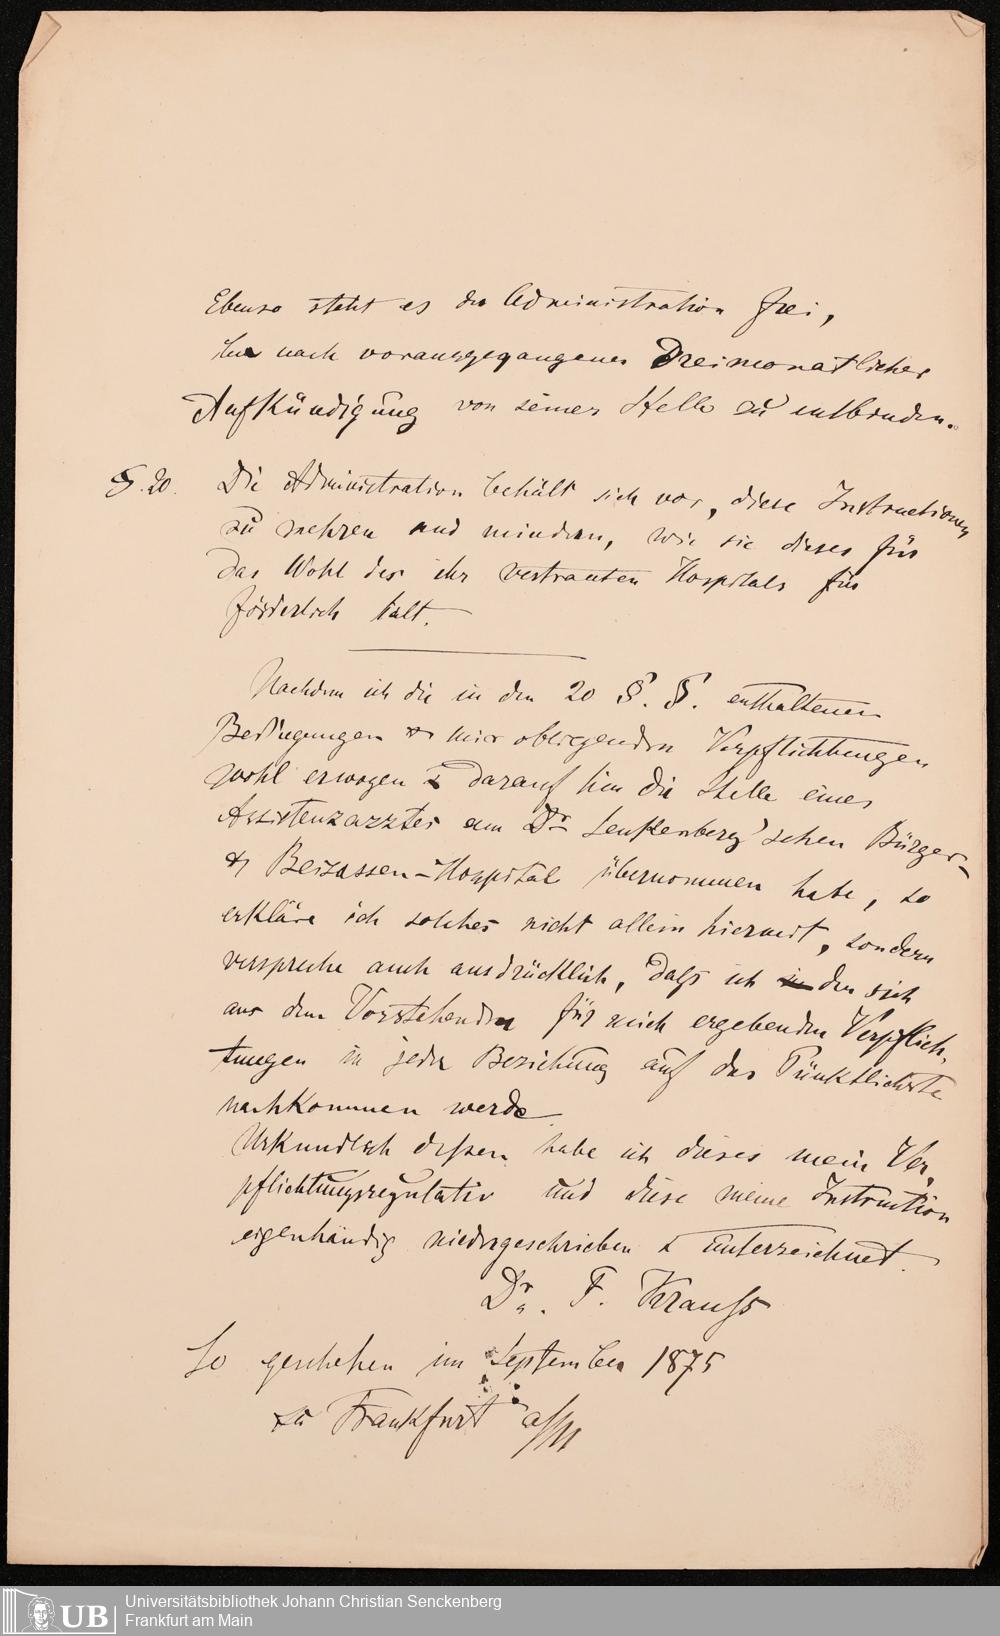 Ebenso steht es der Administration frei,
ihn nach vorausgegangener Dreimonatlicher
Aufkündigung von seiner Stelle zu entbinden.
§. 20. Die Administration behält sich vor, diese Instructionen
zu mehren und mindern, wie sie dieses für
das Wohl des ihr vertrauten Hospitals für
förderlich halt.
Nachdem ich die in den 20 §. §. enthaltenen
Bedingungen & mir obliegenden Verpflichtungen
wohl erwogen & darauf hin die Stelle eines
Assistenzarztes am Dr Senckenberg'schen Bürger-
& Beisassen-Hospital übernommen habe, so
erkläre ich solches nicht allein hiermit, sondern
verspreche auch ausdrücklich, daß ich den sich
aus dem Vorstehenden für mich ergebenden Verpflich-
tungen in jeder Beziehung auf das Pünktlichste
nachkommen werde.
Urkundlich dessen habe ich dieses mein Ver-
pflichtungsregulativ und diese meine Instruction
eigenhändig niedergeschrieben & unterzeichnet.
Dr. F. Krauß
So geschehen im September 1875
zu Frankfurt a/M
UB
Universitätsbibliothek Johann Christian Senckenberg
Frankfurt am Main